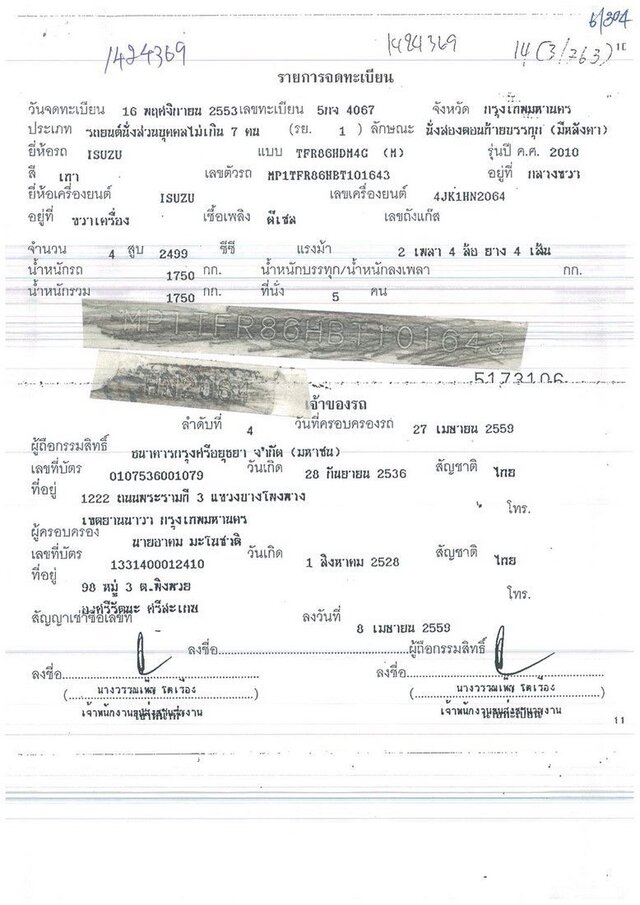 6/304
1424369 1424369 14(3/763)
รายการจดทะเบียน
วันจดทะเบียน 16 พฤศจิกายน 2553 เลขทะเบียน 5กจ 4067 จังหวัด กรุงเทพมหานคร
ประเภท รถยนต์นั่งส่วนบุคคลไม่เกิน 7 คน (รย. 1 ) ลักษณะ นั่งสองตอนท้ายบรรทุก (มีหลังคา)
ยี่ห้อรถ ISUZU แบบ TFR86HDM4G (M) รุ่นปี ค.ศ. 2010
สี เทา เลขตัวรถ MP1TFR86HBT101643 อยู่ที่ กลางขวา
ยี่ห้อเครื่องยนต์ ISUZU เลขเครื่องยนต์ 4JK1HN2064
อยู่ที่ ขวาเครื่อง เชื้อเพลิง ดีเซล เลขถังแก๊ส
จำนวน 4 สูบ 2499 ซีซี แรงม้า 2 เพลา 4 ล้อ ยาง 4 เส้น
น้ำหนักรถ 1750 กก. น้ำหนักบรรทุก/น้ำหนักลงเพลา กก.
น้ำหนักรวม 1750 กก. ที่นั่ง 5 คน
MP1TFR86HBT101643
HN2064 5173106
เจ้าของรถ
ลำดับที่ 4 วันที่ครอบครองรถ 27 เมษายน 2559
ผู้ถือกรรมสิทธิ์ ธนาคารกรุงศรีอยุธยา จำกัด (มหาชน)
เลขที่บัตร 0107536001079 วันเกิด 28 กันยายน 2536 สัญชาติ ไทย
ที่อยู่ 1222 ถนนพระรามที่ 3 แขวงบางโพงพาง
เขตยานนาวา กรุงเทพมหานคร โทร.
ผู้ครอบครอง นายอาคม มะโนชาติ
เลขที่บัตร 1331400012410 วันเกิด 1 สิงหาคม 2528 สัญชาติ ไทย
ที่อยู่ 98 หมู่ 3 ต.พิงพวย โทร.
อ.ศรีรัตนะ ศรีสะเกษ
สัญญาเช่าซื้อเลขที่ ลงวันที่ 8 เมษายน 2559
ลงชื่อ ผู้ถือกรรมสิทธิ์
ลงชื่อ ลงชื่อ
( นางวรรณเพ็ญ โตเรือง ) ( นางวรรณเพ็ญ โตเรือง )
เจ้าพนักงานขนส่ง นายทะเบียน
11